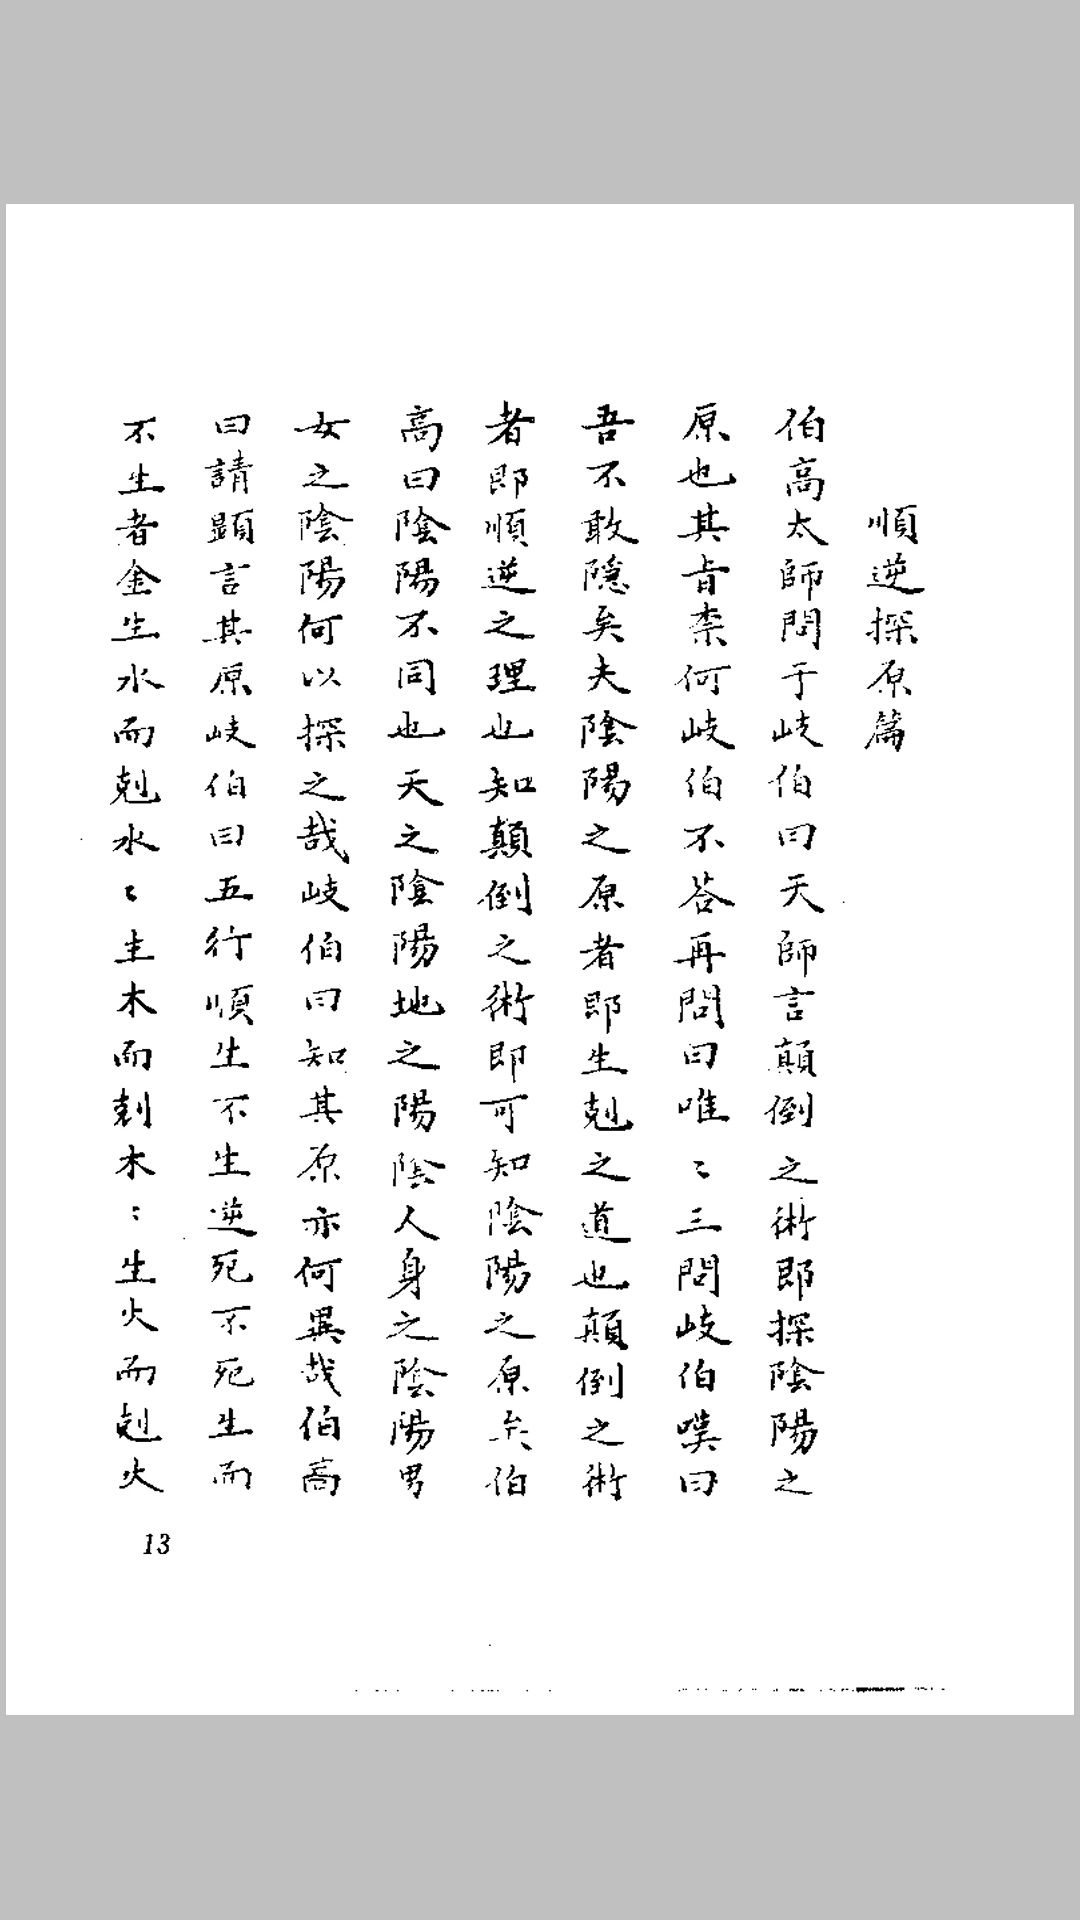 順逆探原篇
伯高太師問于岐伯曰天師言顛倒之術即探陰陽之
原也其旨柰何岐伯不答再問曰唯〻三問岐伯嘆曰
吾不敢隱矣夫陰陽之原者即生剋之道也顛倒之術
者即順逆之理也知顛倒之術即可知陰陽之原矣伯
高曰陰陽不同也天之陰陽地之陽陰人身之陰陽男
女之陰陽何以探之哉岐伯曰知其原亦何異哉伯高
曰請顕言其原岐伯曰五行順生不生逆死不死生而
不生者金生水而剋水〻生木而剋木〻生火而剋火
13